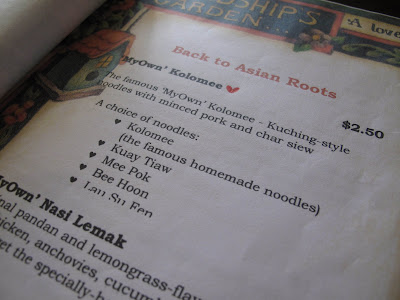 NDSHIP'S
GARDEN
A love
Back to Asian Roots
MyOwn' Kolomee
The famous 'MyOwn' Kolomee - Kuching-style $2.50
noodles with minced pork and char siew
A choice of noodles:
Kolomee
(the famous homemade noodles)
Kuay Tiaw
Mee Pok
Bee Hoon
Lau Su Fen
MyOwn' Nasi Lemak
inal pandan and lemongrass-flav
hicken, anchovies, cucum
get the specially-b